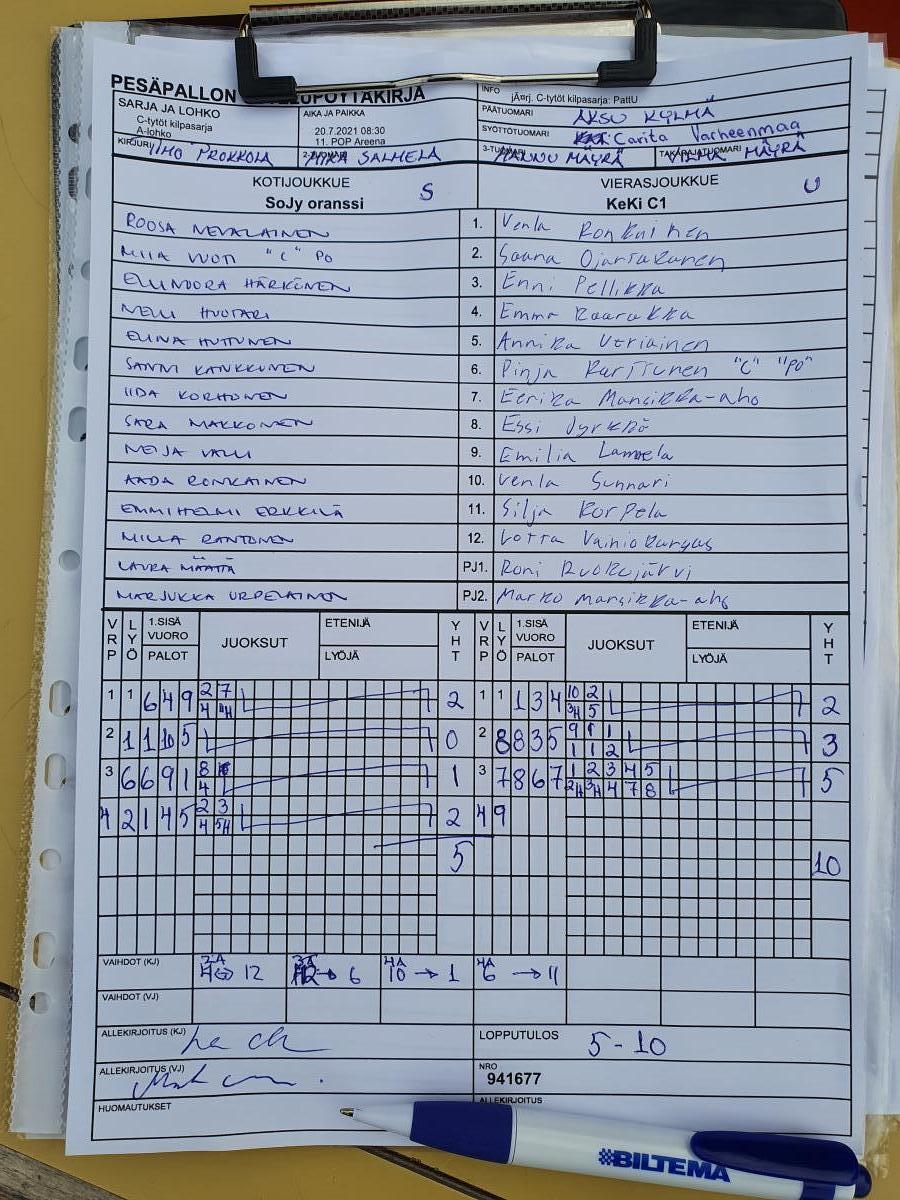 PESÄPALLON
SARJA JA LOHKO
C-tytöt kilpasarja
A-lohko
AIKA JA PAIKKA
20.7.2021 08:30
11. POP Areena
INFO
jÃ¤rj. C-tytöt kilpasarja: PattU
PÄÄTUOMARI AKSU KYLMÄ
SYÖTTÖTUOMARI Carita Varheenmaa
KIRJURI ILMO PROKKOLA SALMELA
3-TUOMARI HANNU MÄYRÄ TAKARAJATUOMARI VILMA MÄYRÄ
KOTIJOUKKUE S VIERASJOUKKUE U
SoJy oranssi KeKi C1
ROOSA NEVALAINEN 1. Venla Ronkainen
MIIA VUOTI "C" PO 2. Saana Ojantakanen
ELLINOORA HÄRKÖNEN 3. Enni Pellikka
NELLI HUOTARI 4. Emma Kaarakka
ELINA HUTTUNEN 5. Annika Väriainen
SANNI KANKKUNEN 6. Pinja Karttunen "C" "PO"
IIDA KORHONEN 7. Eerika Mansikka-aho
SARA MAKKONEN 8. Essi Jyrkkö
NEIJA VALLI 9. Emilia Lampela
AADA RONKAINEN 10. Venla Sunnari
EMMIHELMI ERKKILÄ 11. Silja Korpela
MILLA RANTONEN 12. Lotta Vainiokangas
LAURA MÄÄTTÄ PJ1. Roni Ruokojärvi
MARJUKKA URPELAINEN PJ2. Marko Mansikka-aho
VRP LYÖ 1.SISÄ VUORO PALOT JUOKSUT ETENIJÄ LYÖJÄ YHT VRP LYÖ 1.SISÄ VUORO PALOT JUOKSUT ETENIJÄ LYÖJÄ YHT
1 1 6 4 9 2 7 2 1 1 1 3 4 10 2 2
4 4H 3H 5
2 1 1 10 5 0 2 8 8 3 5 9 1 1 3
1 1 2
3 6 6 9 1 8 1 3 7 8 6 7 1 2 3 4 5 5
4 2H 3H 4 7 8
4 2 1 4 5 2 3 2 4 9
4 5H
5 10
VAIHDOT (KJ) 12 6 4A 10 → 1 4A 6 → 11
VAIHDOT (VJ)
ALLEKIRJOITUS (KJ) LOPPUTULOS 5-10
ALLEKIRJOITUS (VJ) NRO
941677
HUOMAUTUKSET ALLEKIRJOITUS
BILTEMA